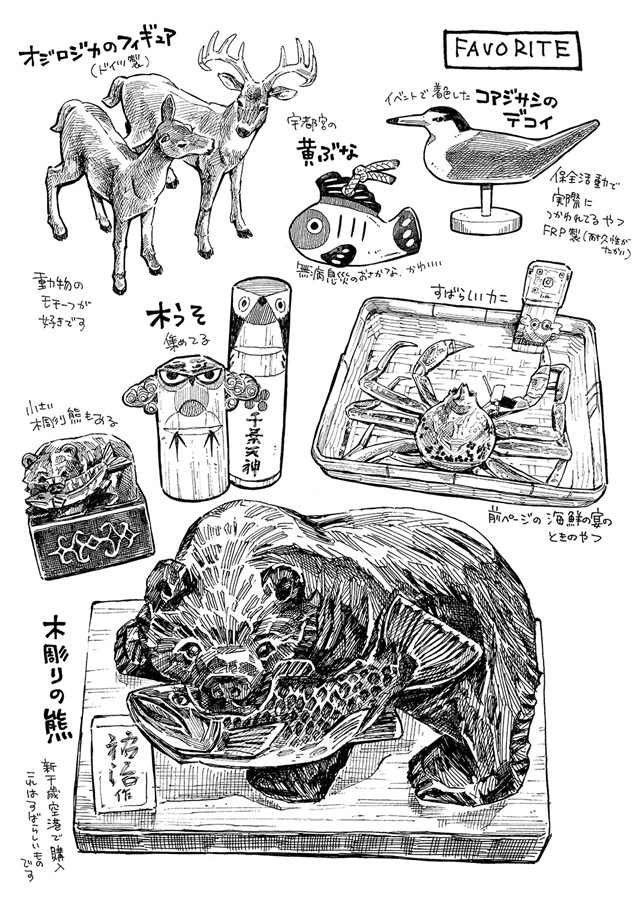 FAVORITE
オジロジカのフィギュア
(ドイツ製)
動物の
モチーフが
好きです
宇都宮の
黄ぶな
無病息災のおさかな、かわいい
イベントで着色した コアジサシの
デコイ
保全活動で
実際に
つかわれてるやつ
FRP製(耐久性が
たかい)
木うそ
集めてる
千葉天神
すばらしいカニ
前ページの 海鮮の宴の
ときのやつ
小さい
木彫り熊もある
木彫りの熊
新千歳空港で購入
これはすばらしいもの
です
作